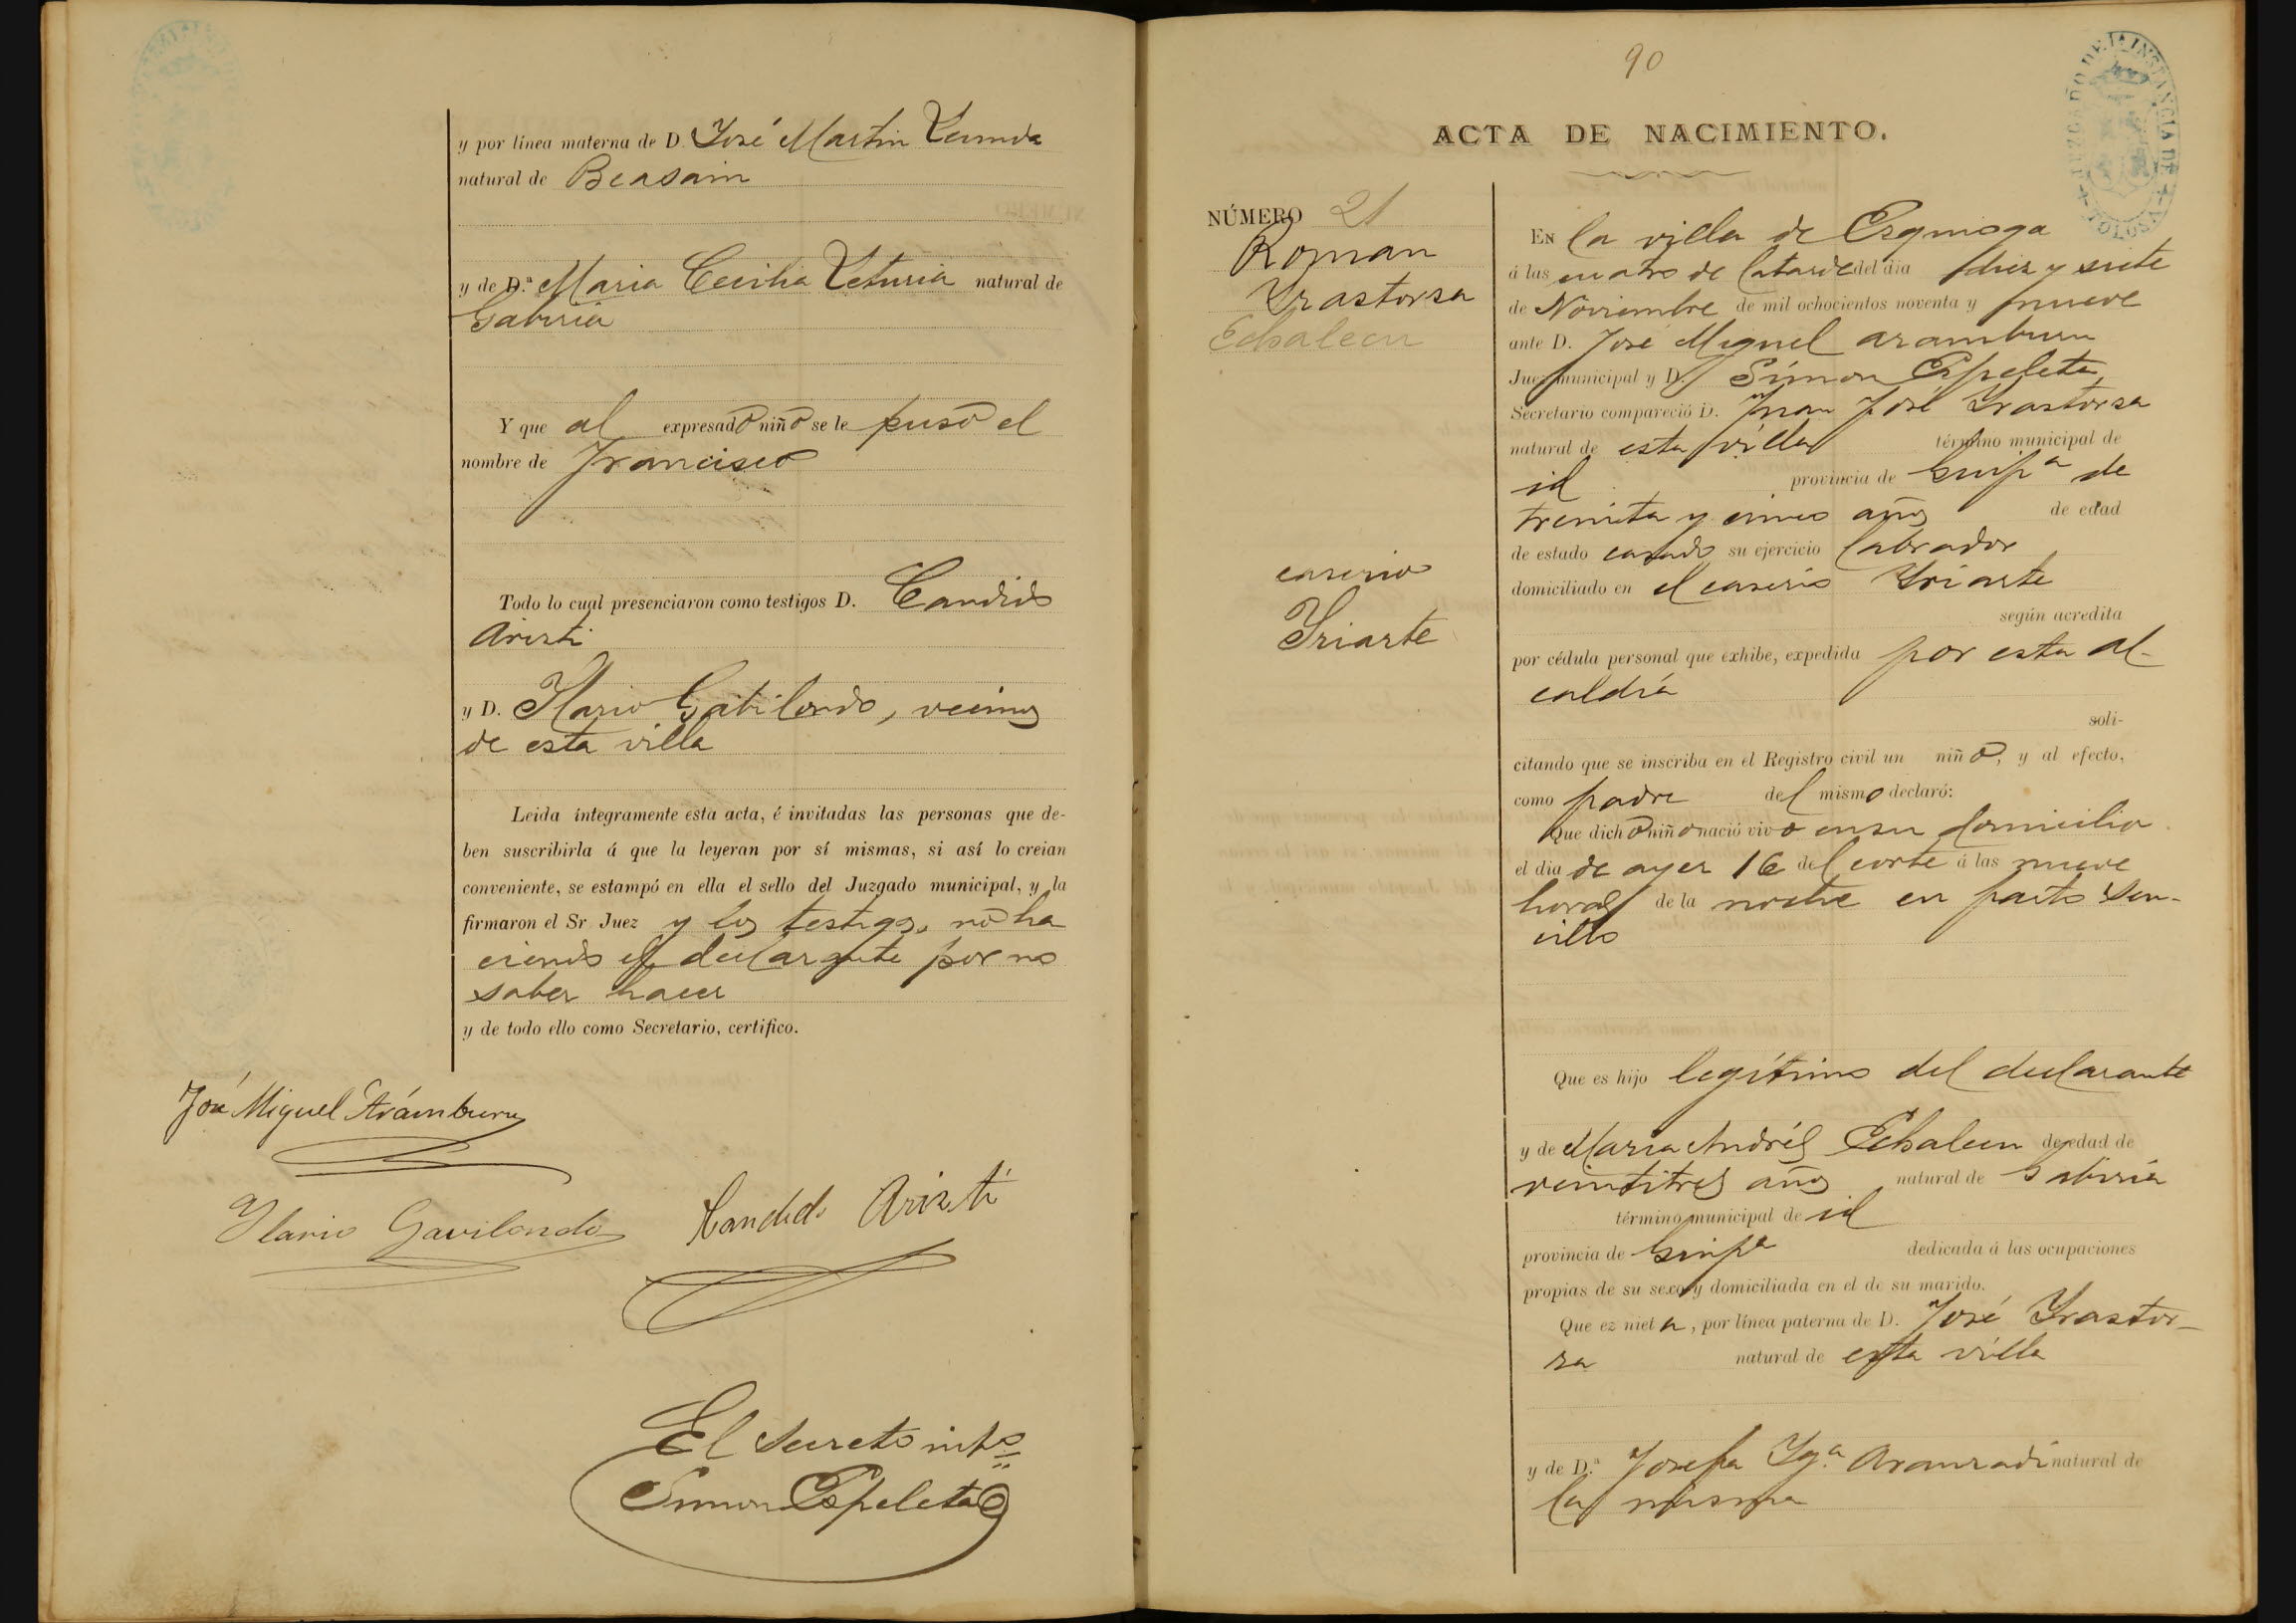 y por línea materna de D. José Martin
natural de Beasain
y de D.ª Maria Cecilia natural de
Gabiria
Y que al expresado niño se le puso el
nombre de Francisco
Todo lo cual presenciaron como testigos D. Candido
Aristi
y D. Ilario Gabilondo, vecinos
de esta villa
Leida íntegramente esta acta, é invitadas las personas que de-
ben suscribirla á que la leyeran por sí mismas, si así lo creian
conveniente, se estampó en ella el sello del Juzgado municipal, y la
firmaron el Sr Juez y los testigos, no ha
ciendo el declarante por no
saber hacer
y de todo ello como Secretario, certifico.
José Miguel Arámburu
Ilario Gavilondo Candido Aristi
El Secreto intº
Simon Espeleta
90
JUZGADO DE 1ª INSTANCIA DE TOLOSA
ACTA DE NACIMIENTO.
NÚMERO 21
Roman
Yrastorsa
Echalecu
caserio
Yriarte
EN la villa de Ezquioga
á las cuatro de la tarde del dia diez y siete
de Noviembre de mil ochocientos noventa y nueve
ante D. José Miguel aramburu
Juez municipal y D. Simon Espeleta
Secretario compareció D. Juan José Yrastorsa
natural de esta villa término municipal de
id provincia de Guipª de
treinta y cinco años de edad
de estado casado su ejercicio labrador
domiciliado en el caserio Yriarte
según acredita
por cédula personal que exhibe, expedida por esta al-
caldía
soli-
citando que se inscriba en el Registro civil un niño, y al efecto,
como padre del mismo declaró:
Que dicho niño nació vivo en su domicilio
el dia de ayer 16 del corte á las nueve
horas de la noche en parto sen-
cillo
Que es hijo legítimo del declarante
y de Maria Andrés Echalecu de edad de
veintitres años natural de Gabiria
término municipal de id
provincia de Guipª dedicada á las ocupaciones
propias de su sexo y domiciliada en el de su marido.
Que ez nieta, por línea paterna de D. José Yrastor-
sa natural de esta villa
y de D.ª Josefa Ygª Aramzadi natural de
la misma